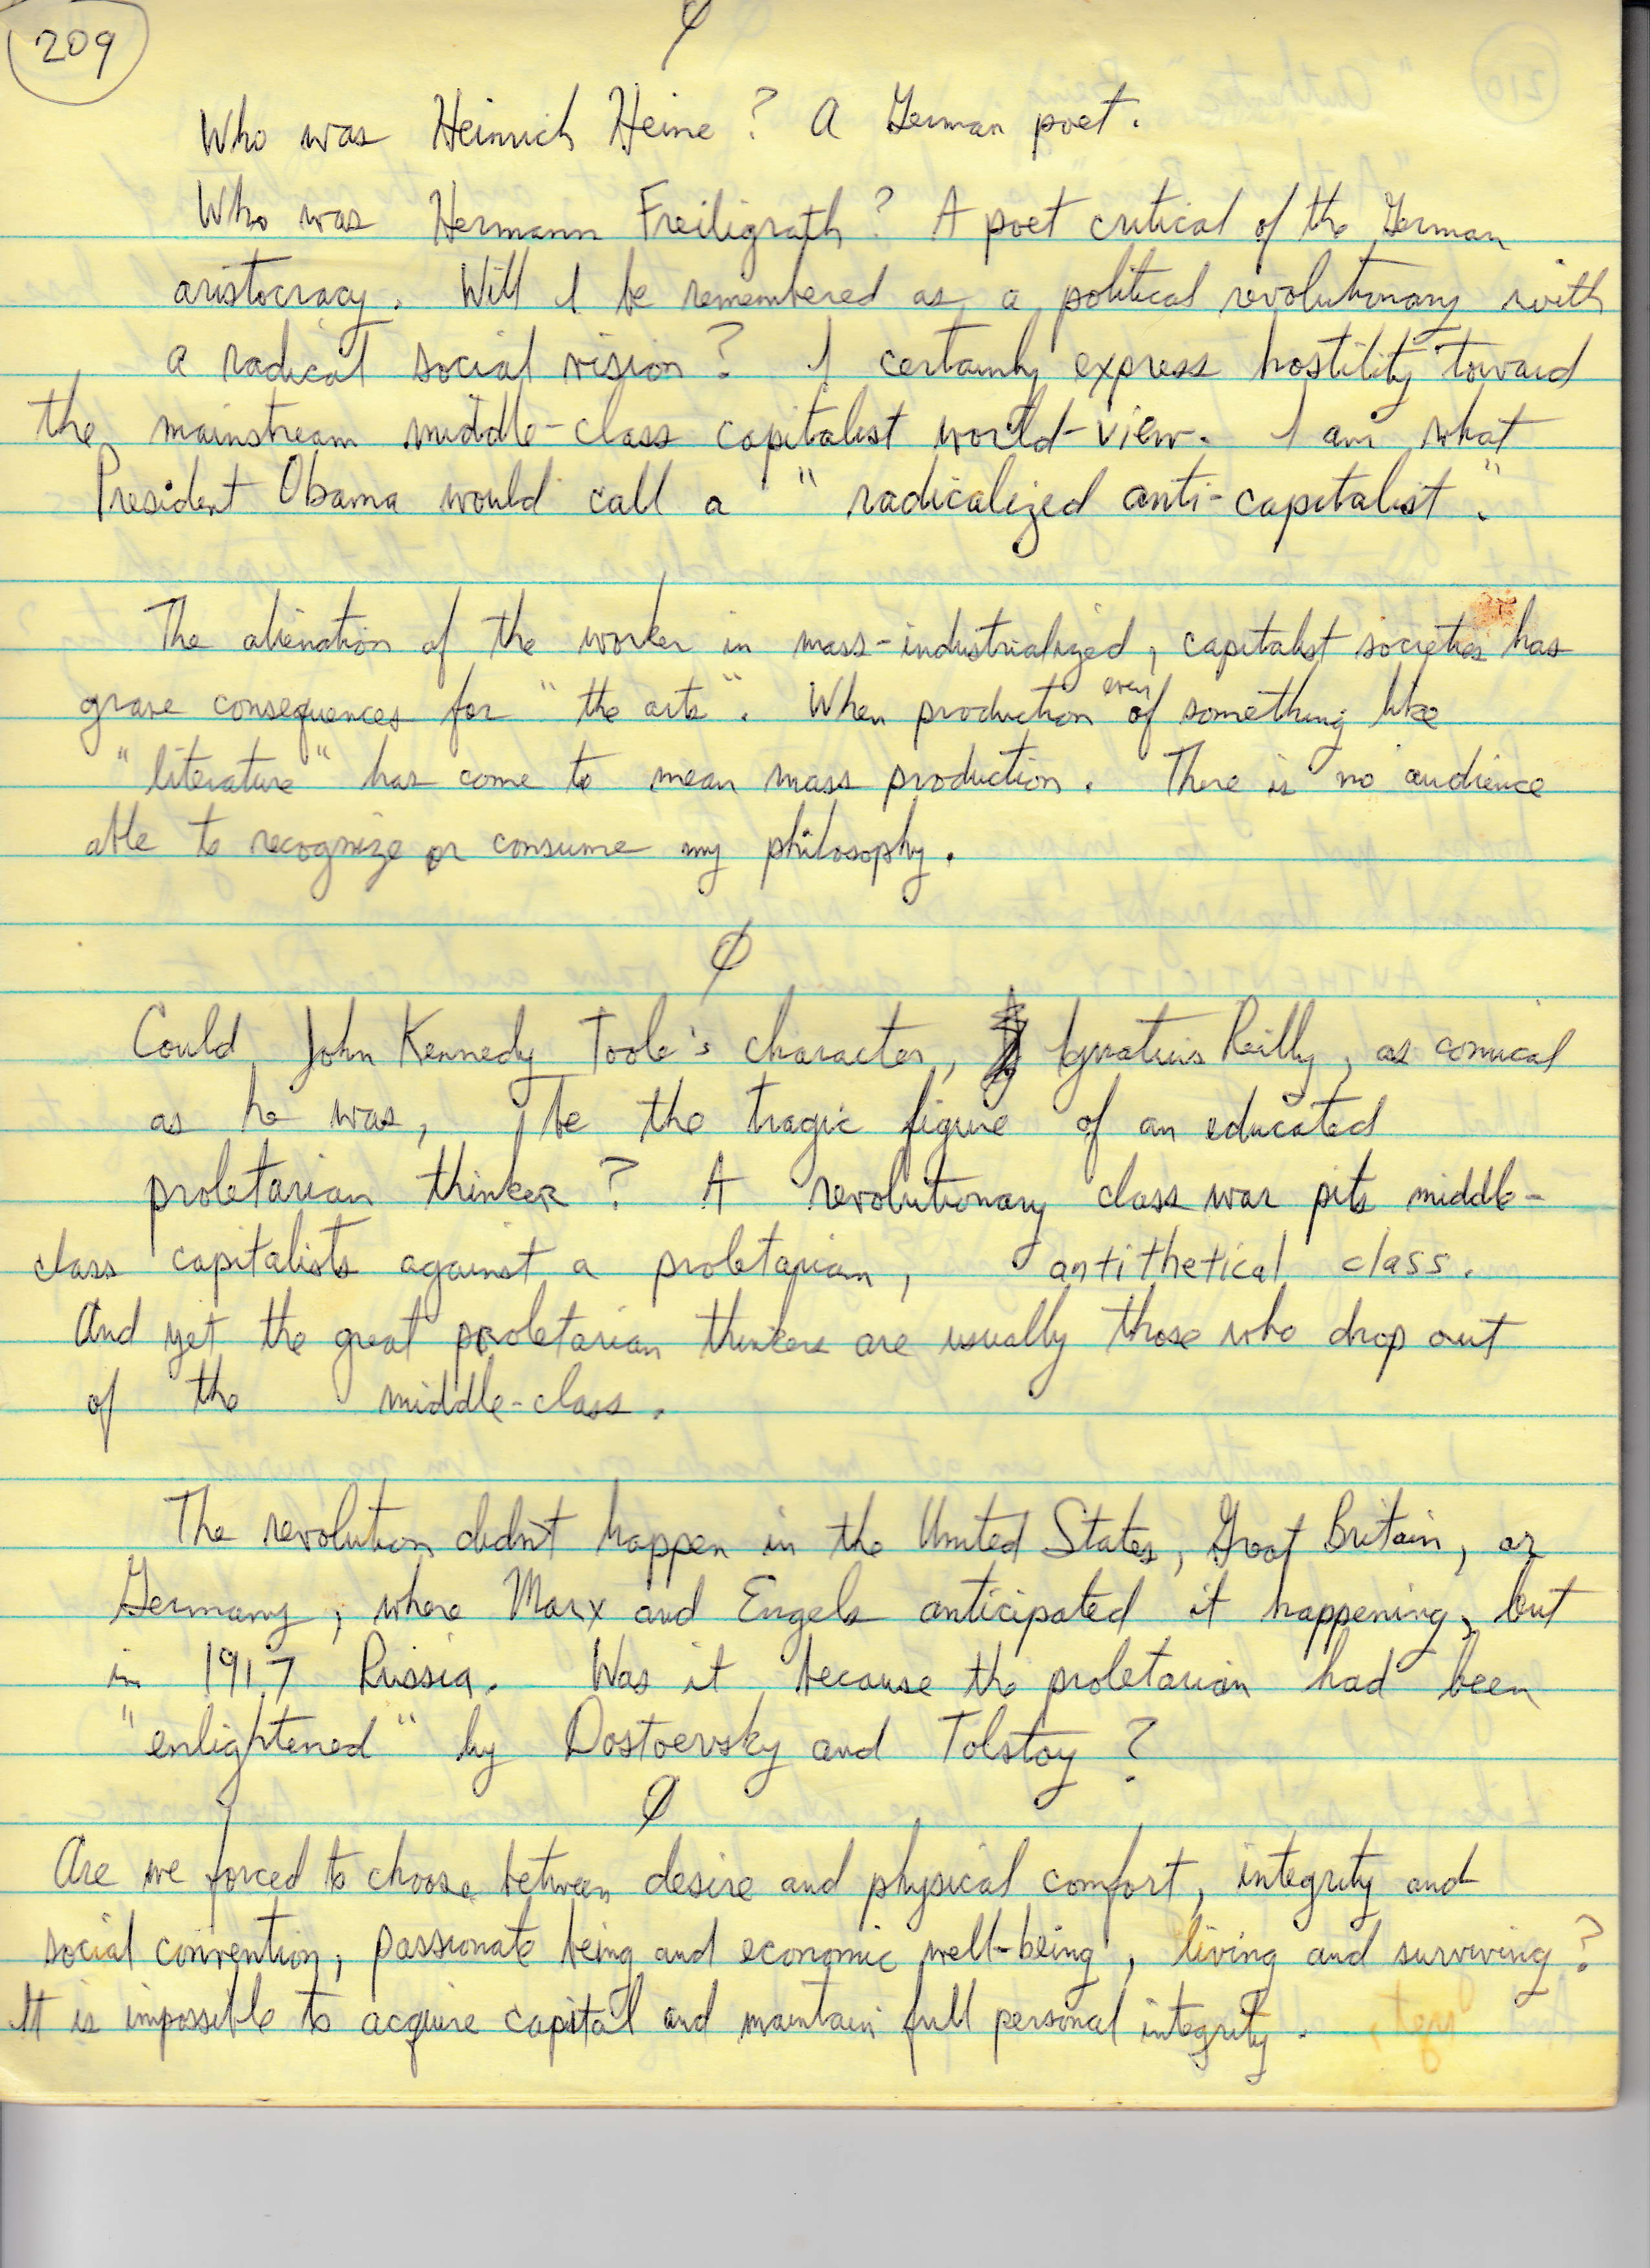 209
Ø
Who was Heinrich Heine? A German poet.
Who was Hermann Freiligrath? A poet critical of the German
aristocracy. Will I be remembered as a political revolutionary with
a radical social vision? I certainly express hostility toward
the mainstream middle-class capitalist world-view. I am what
President Obama would call a "radicalized anti-capitalist".
The alienation of the worker in mass-industrialized, capitalist societies has
grave consequences for "the arts". When production even of something like
"literature" has come to mean mass production. There is no audience
able to recognize or consume my philosophy.
Ø
Could John Kennedy Toole's character, Ignatius Reilly, as comical
as he was, be the tragic figure of an educated
proletarian thinker? A revolutionary class war pits middle-
class capitalists against a proletarian, antithetical class.
And yet the great proletarian thinkers are usually those who drop out
of the middle-class.
The revolution didn't happen in the United States, Great Britain, or
Germany, where Marx and Engels anticipated it happening, but
in 1917 Russia. Was it because the proletarian had been
"enlightened" by Dostoevsky and Tolstoy?
Ø
Are we forced to choose between desire and physical comfort, integrity and
social convention, passionate being and economic well-being, living and surviving?
It is impossible to acquire capital and maintain full personal integrity.